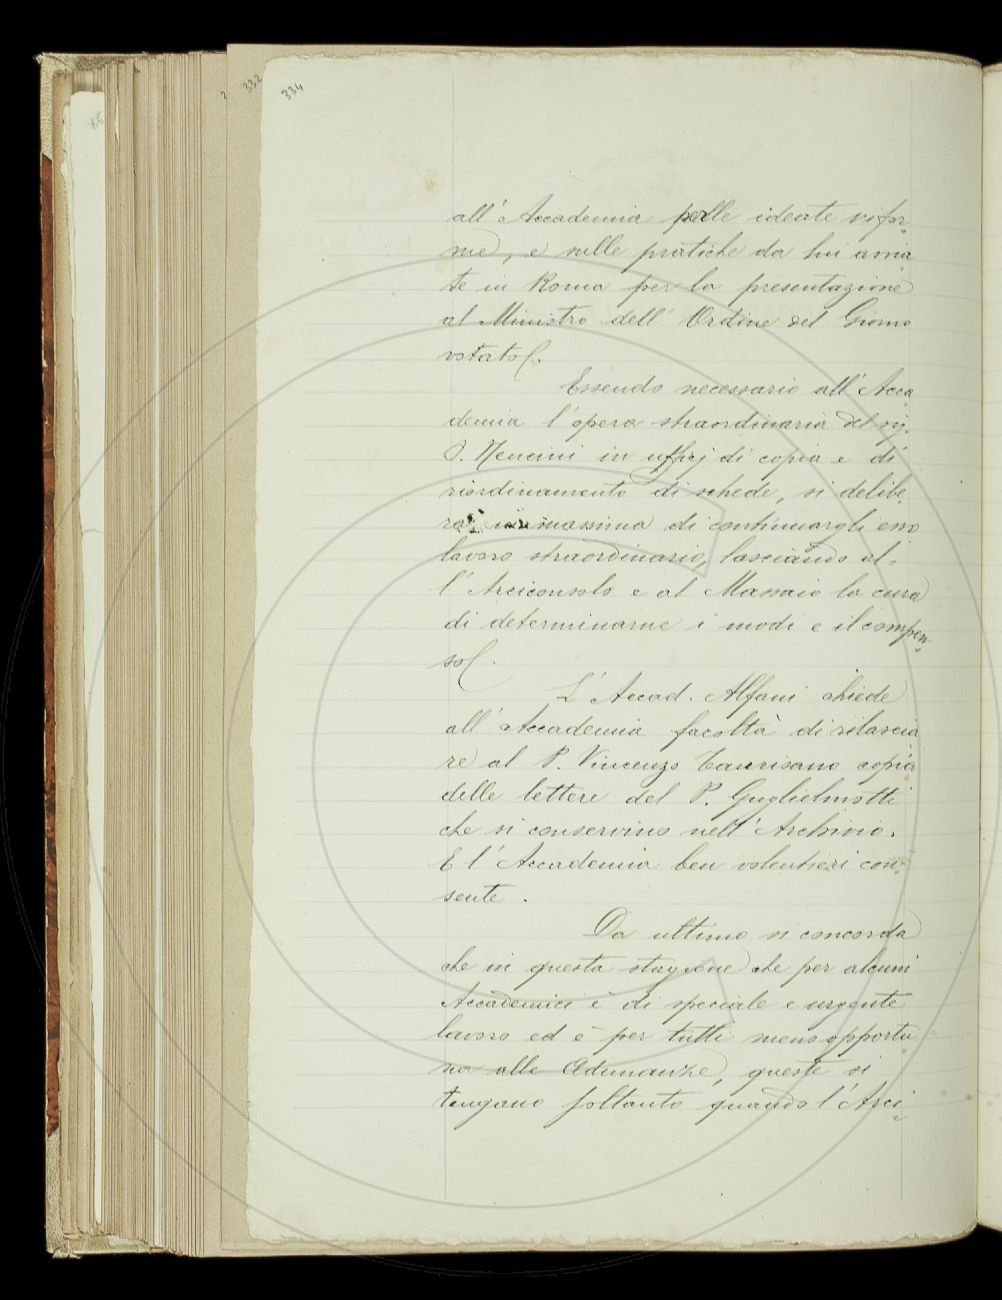 334
332
2
all' Accademia pelle ideate rifor-
me, e nelle pratiche da lui avvia
te in Roma per la presentazione
al Ministro dell' Ordine del Giorno
votato.
Essendo necessario all' Acca
demia l'opera straordinaria del sig.
Nencini in ufficj di copia e di
riordinamento di schede, si delibe-
ra in massima di continuargli esso
lavoro straordinario, lasciando al-
l' Arciconsolo e al Massaio la cura
di determinarne i modi e il compen-
so.
L' Accad. Alfani chiede
all' Accademia facoltà di rilascia
re al P. Vincenzo Taurisano copia
delle lettere del P. Guglielmotti
che si conservino nell' Archivio.
E l' Accademia ben volentieri con-
sente.
Da ultimo si concorda
che in questa stagione che per alcuni
Accademici è di speciale e urgente
lavoro ed è per tutti meno opportu
na alle Adunanze, queste si
tengano soltanto quando l' Arci-